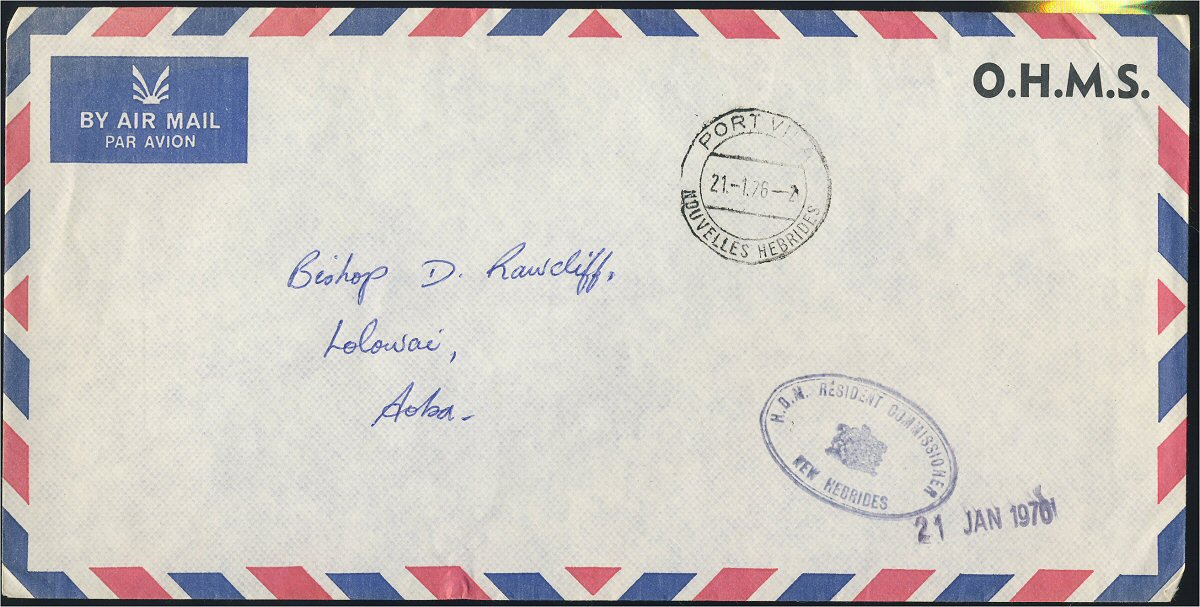 BY AIR MAIL
PAR AVION
O.H.M.S.
PORT VILA
21.-1.76-2
NOUVELLES HEBRIDES
Bishop D. Rawcliff,
Lolowai,
Aoba-
H.B.M. RESIDENT COMMISSIONER
NEW HEBRIDES
21 JAN 1976